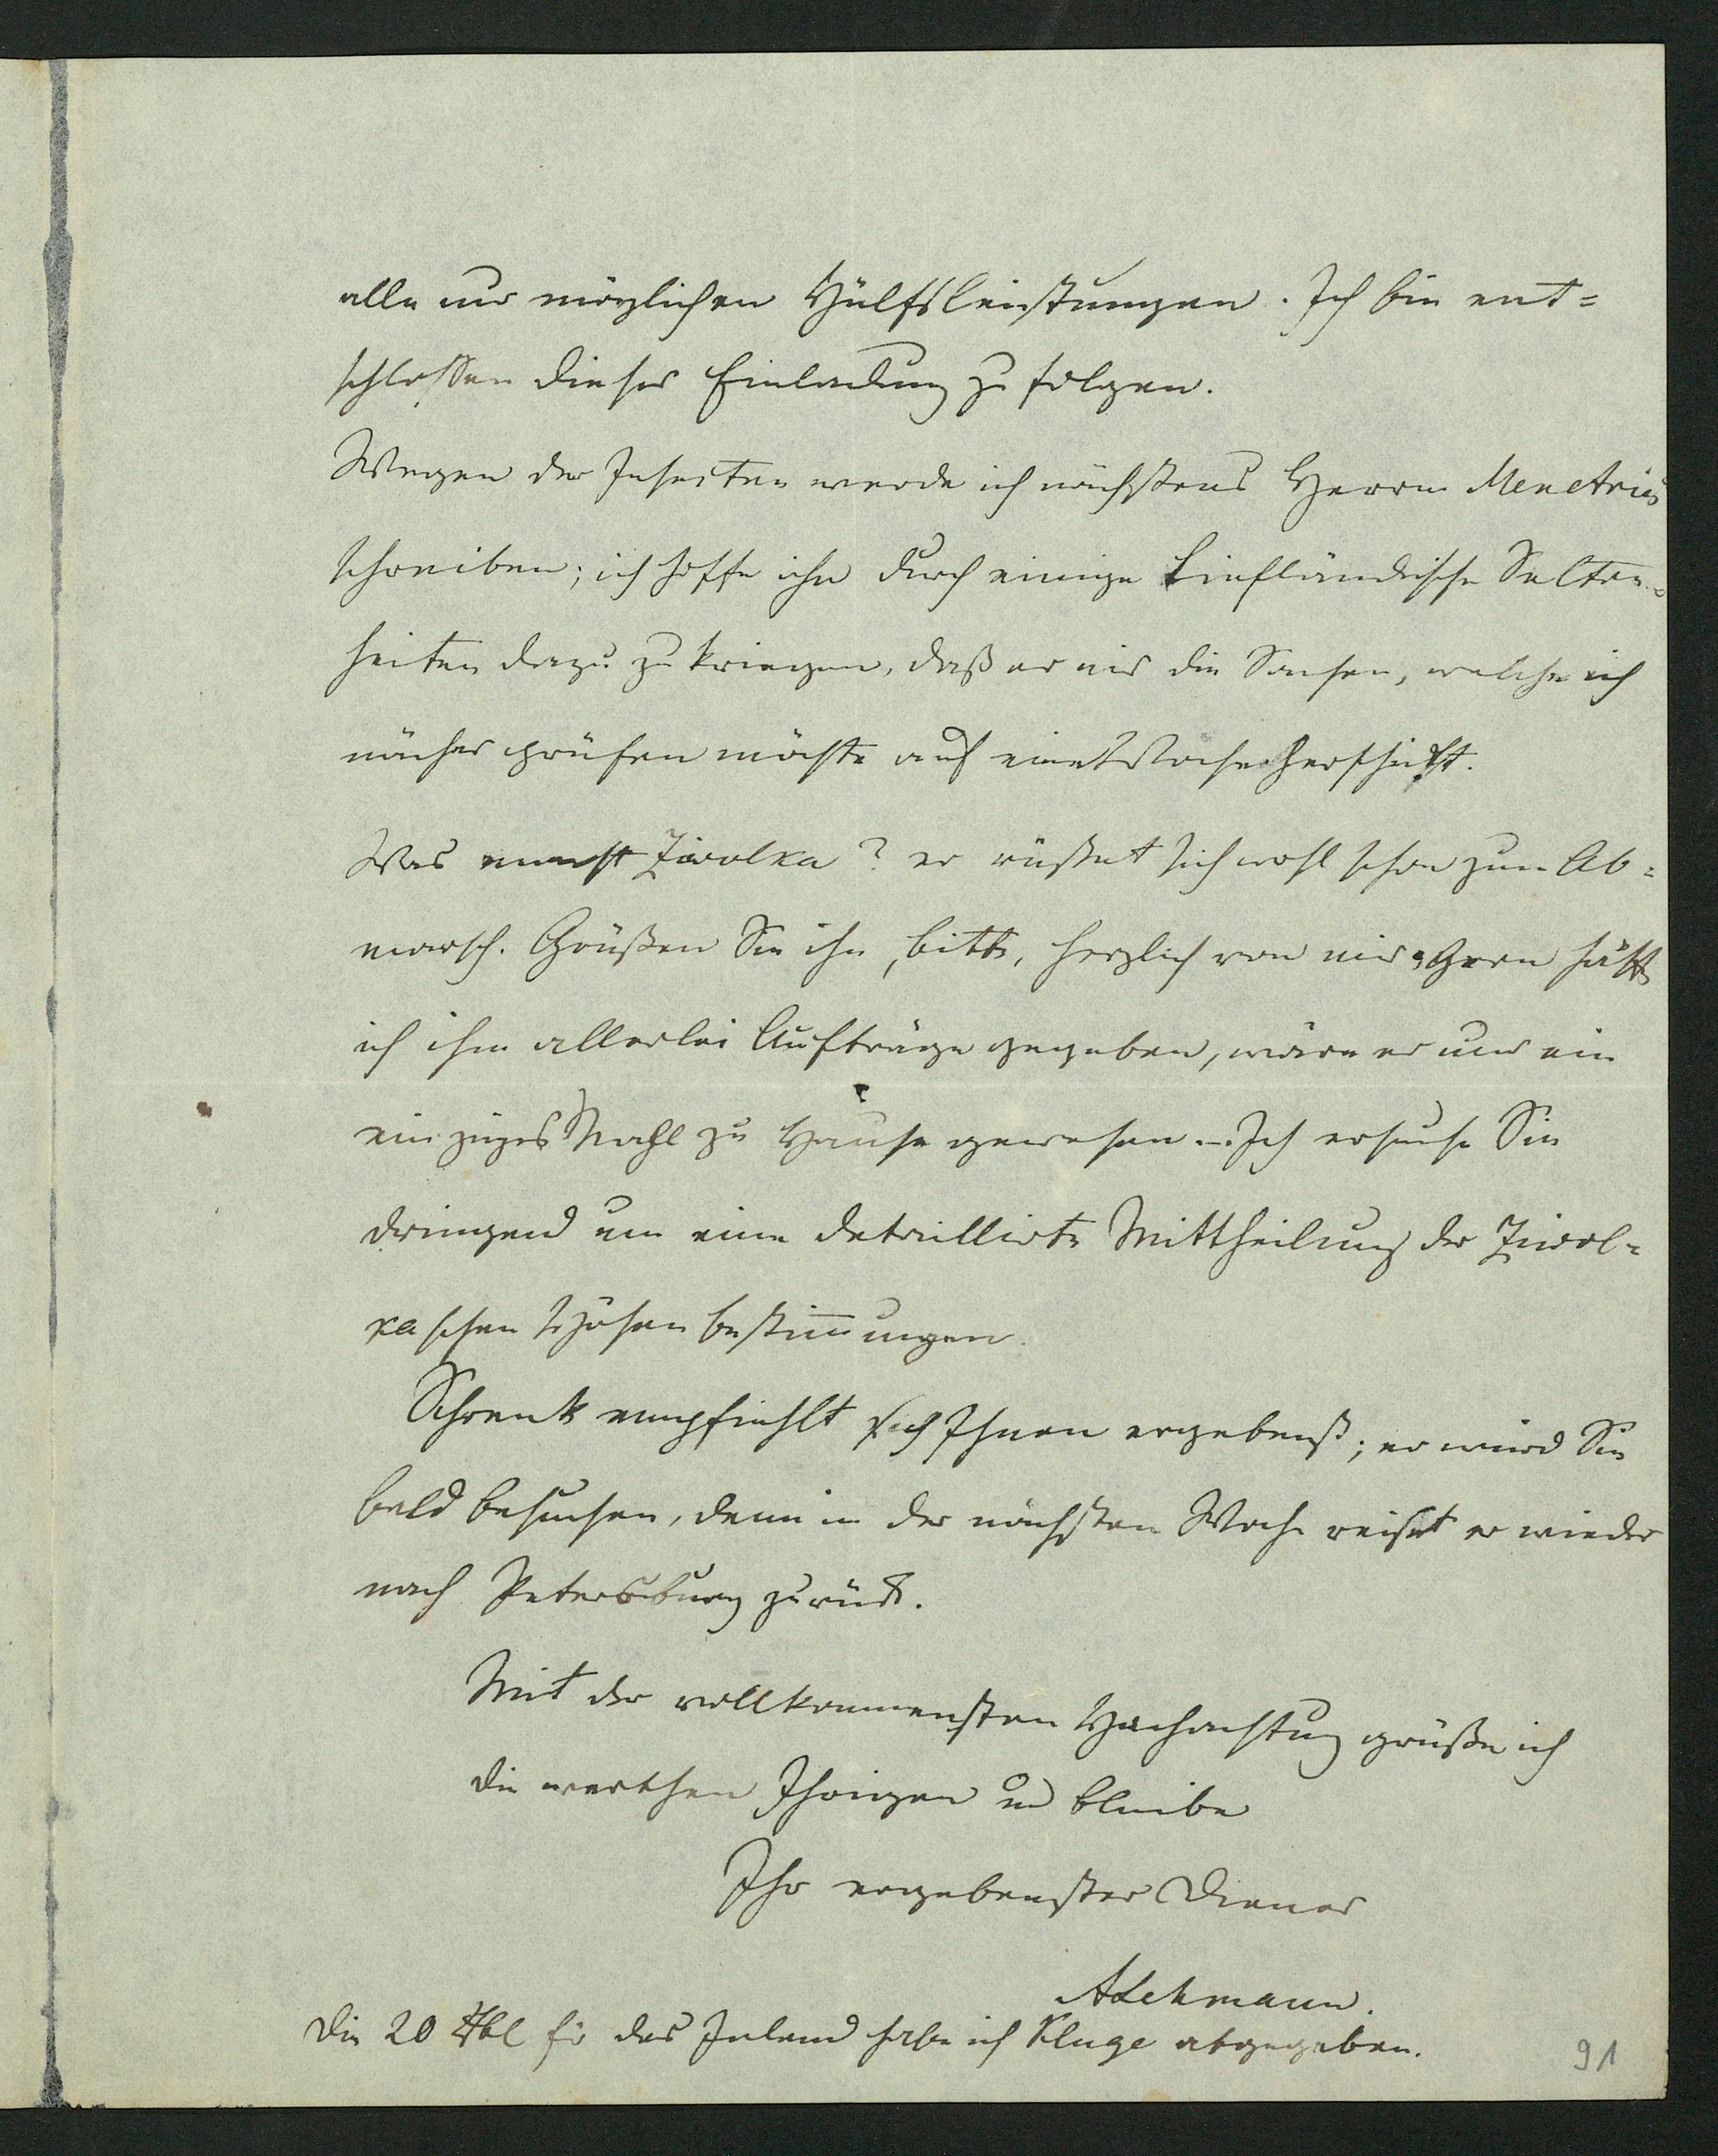 alle nur möglichen Hülfsleistungen. Ich bin ent=
schlossen dieser Einladung zu folgen.
Wegen der Insecten werde ich nächstens Herrn Menetriés
schreiben; ich hoffe ihn durch einige Liefländische Selten=
heiten dazu zu kriegen, daß er mir die Sachen, welche ich
näher prüfen möchte auf eine Woche herschickt.
Was macht Ziwolka? er rüstet sich wohl schon zum Ab=
marsch. Grüßen Sie ihn, bitte, herzlich von mir; gern hätte
ich ihm allerlei Aufträge gegeben, wäre er nur ein
einziges Mahl zu Hause gewesen. – Ich ersuche Sie
dringend um eine detaillirte Mittheilung der Ziwol=
kaschen Höhenbestimungen.
Schrenk empfiehlt sich Ihnen ergebenst; er wird Sie
bald besuchen, denn in der nächsten Woche reiset er wieder
nach Petersburg zurück.
Mit der vollkommensten Hochachtung grüße ich
die werthen Ihrigen und bleibe
Ihr ergebenster Diener
ALehmann.
Die 20 Rbl für das Inland habe ich Kluge abgegeben.
91